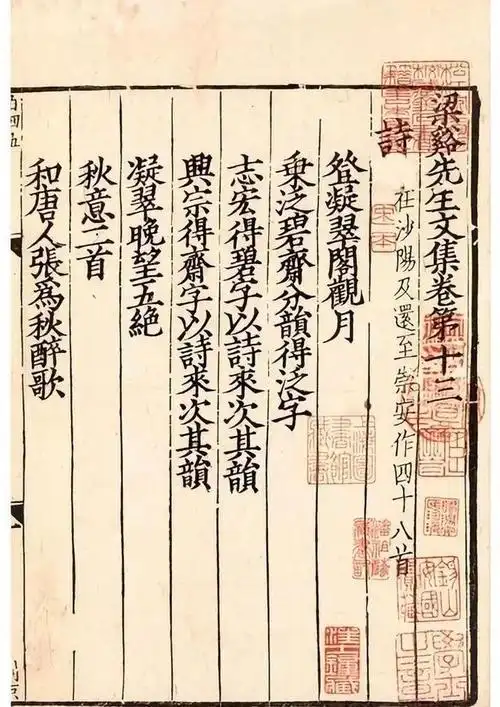 梁谿先生文集卷第十三
詩 在沙陽及還至崇安作四十八首
登凝翠閣觀月
乗泛碧齋分韻得泛字
志宏得碧字以詩來次其韻
興宗得齋字以詩來次其韻
凝翠晚望五絶
秋意二首
和唐人張爲秋醉歌
宋本